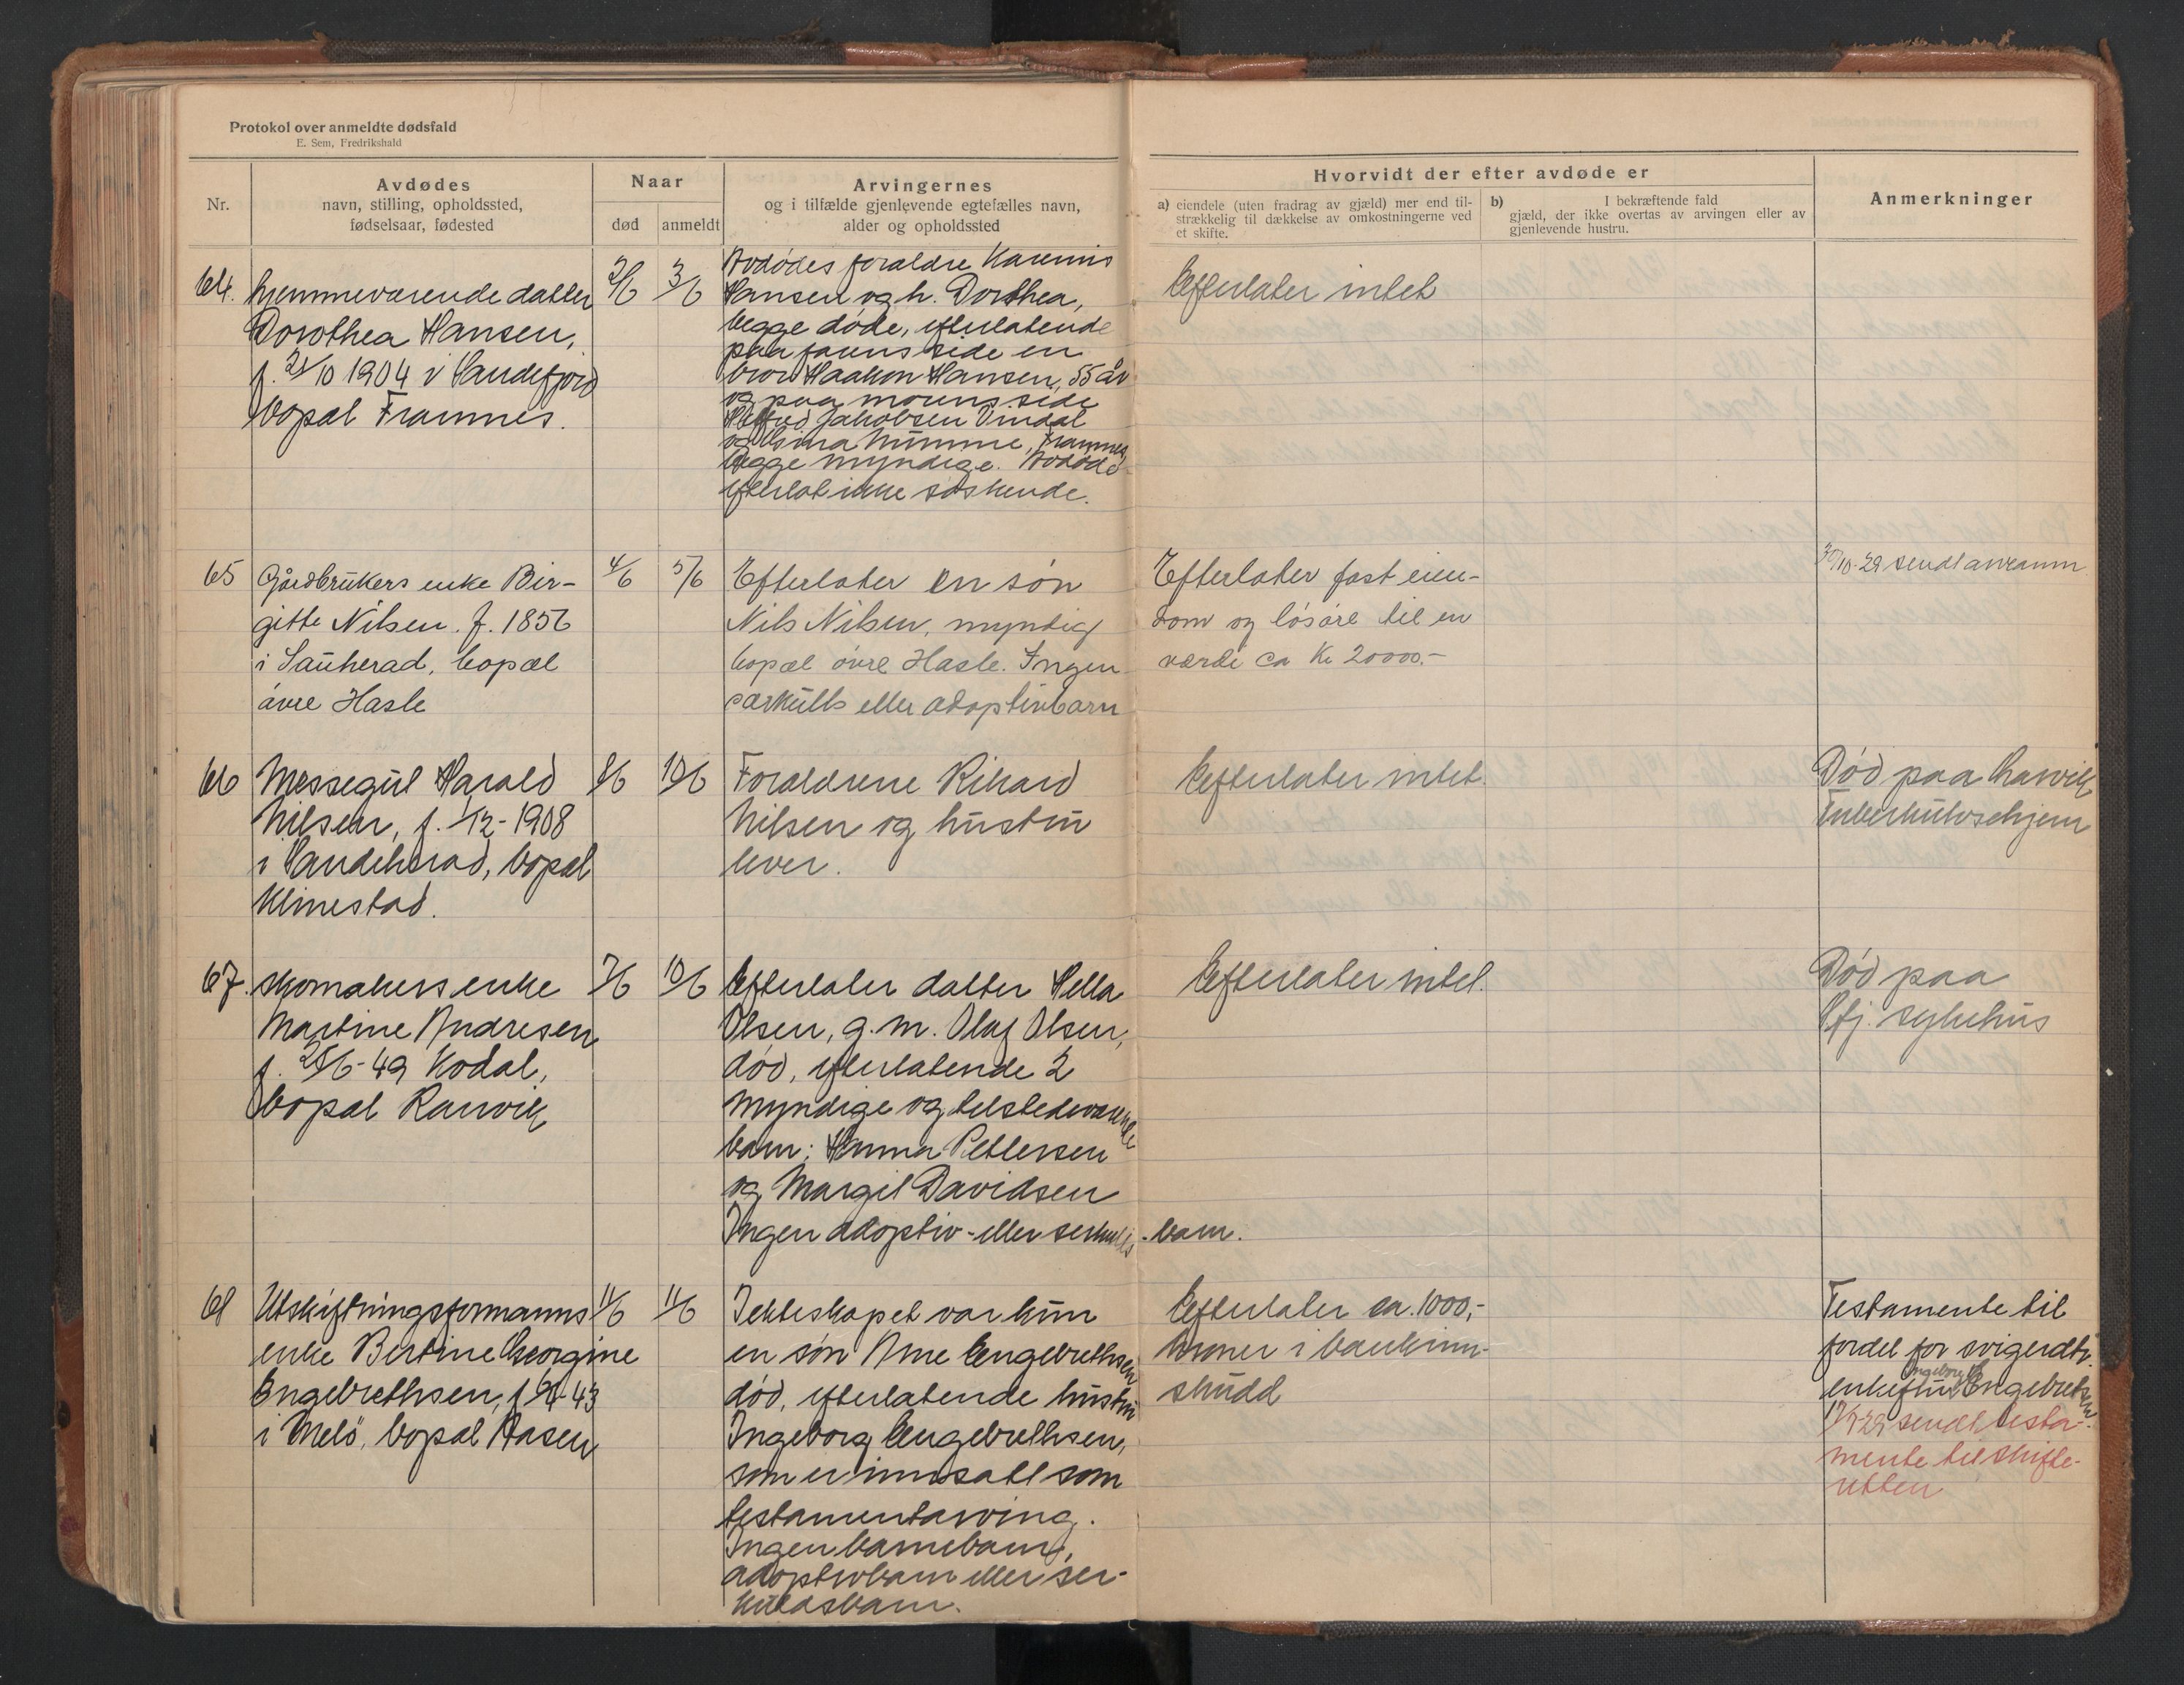 Protokol over anmeldte dødsfald
E. Sem, Fredrikshald
Nr.
Avdødes
navn, stilling, opholdssted,
fødselsaar, fødested
Naar
død
anmeldt
Arvingernes
og i tilfælde gjenlevende egtefælles navn,
alder og opholdssted
Hvorvidt der efter avdøde er
a) eiendele (uten fradrag av gjæld) mer end til-
strækkelig til dækkelse av omkostningerne ved
et skifte.
b) I bekræftende fald
gjæld, der ikke overtas av arvingen eller av
gjenlevende hustru.
Anmerkninger
64.
hjemmeværende datter
Dorothea Hansen,
f. 21/10 1904 i Sandefjord
bopæl Framnes.
2/6
3/6
Avdødes foraldre Karenius
Hansen og h. Dorthea,
begge døde, efterlatende
paa farens side en
bror Haakon Hansen, 55 år
og paa morens side
Jakobsen Vindal
og Gina Numme, Framnes
begge myndige. Avdøde
efterlot ikke søskende.
Efterlater intet
65
Gårdbrukers enke Bir-
gitte Nilsen. f. 1856
i Sauherad, bopæl
øvre Hasle
4/6
5/6
Efterlater en søn
Nils Nilsen, myndig
bopæl øvre Hasle. Ingen
særkulls eller adoptivbarn
Efterlater fast eien-
dom og løsøre til en
værdi ca Kr 20000.-
30/10-29 sendt
66
Messegut Harald
Nilsen, f. 1/12-1908
i Sandeherad, bopæl
Klinestad.
8/6
10/6
Foraldrene Rikard
Nilsen og hustru
lever.
Efterlater intet.
Død paa Larvik
Tuberkulosehjem
67.
skomakers enke
Martine Andresen
f. 25/6-49 Kodal,
bopæl Ranvik
7/6
10/6
Efterlater datter Hella
Olsen, g.m. Olaf Olsen,
død, efterlatende 2
myndige og tilstedeværende
barn: Hanna Pettersen
og Margit Davidsen
Ingen adoptiv- eller serkulls-barn.
Efterlater intet.
Død paa
Sfj. sykehus
68
Utskiftningsformanns
enke Bertine Georgine
Engebrethsen, f. -43
i Melö, bopæl Aasen
11/6
11/6
I ekteskapet var kun
en søn Arne Engebrethsen
død, efterlatende hustru
Ingeborg Engebrethsen,
som er innsatt som
testamentarving.
Ingen barnebarn,
adoptivbarn eller ser-
kuldsbarn.
Efterlater ca. 1000,-
kroner i bankinn-
skudd
Testamente til
fordel for svigerdtr.
enkefru Ingeborg Engebretsen.
-29 sendt testa-
mente til skifte-
retten